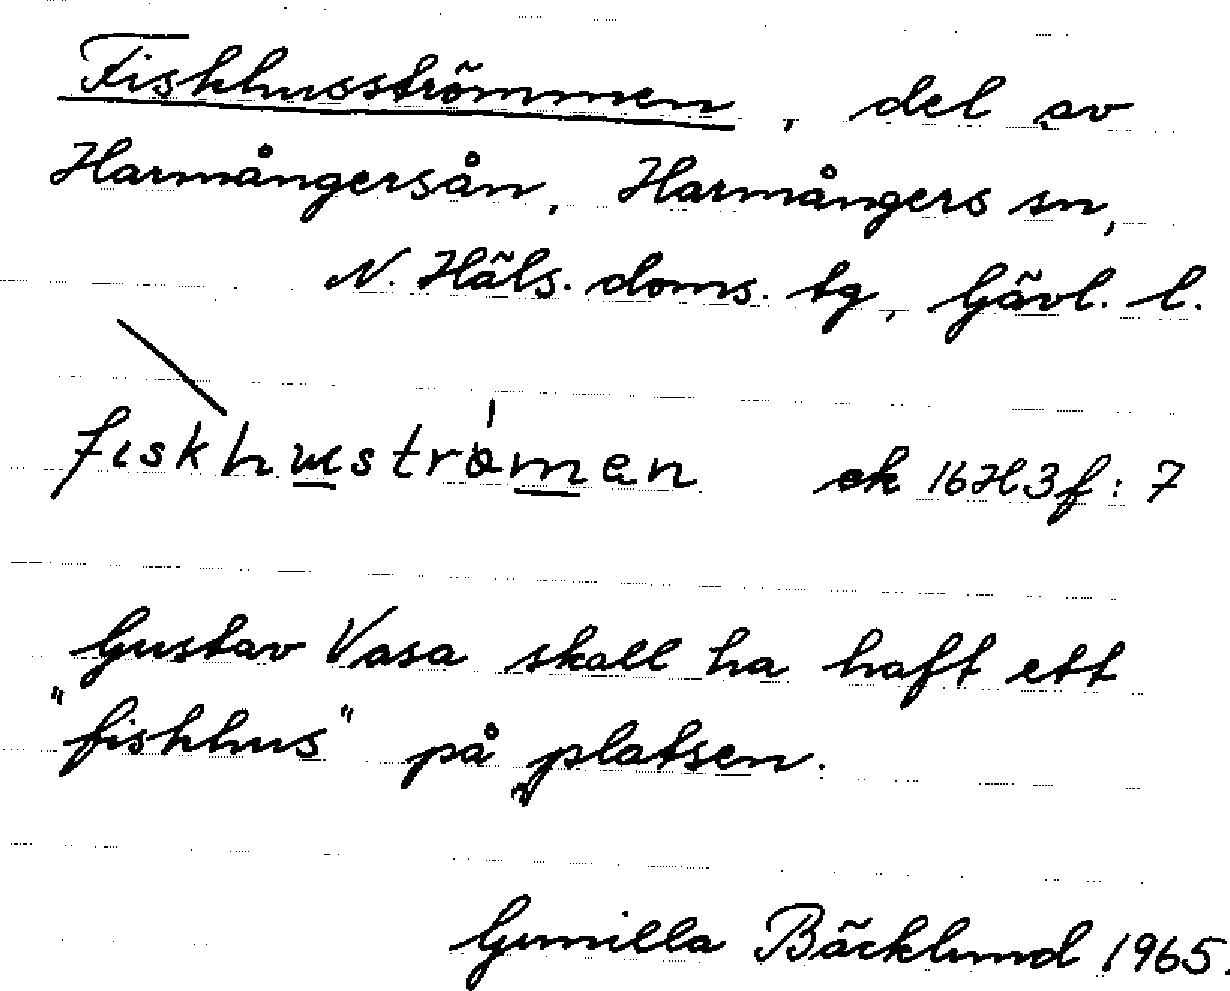 Fiskhusströmmen, del av
Harmångersån, Harmångers sn,
N. Häls. doms. tg, Gävl. l.
fiskhusströmen ek 16H3f:7
Gustav Vasa skall ha haft ett
"fiskhus" på platsen.
Gunilla Bäcklund 1965.